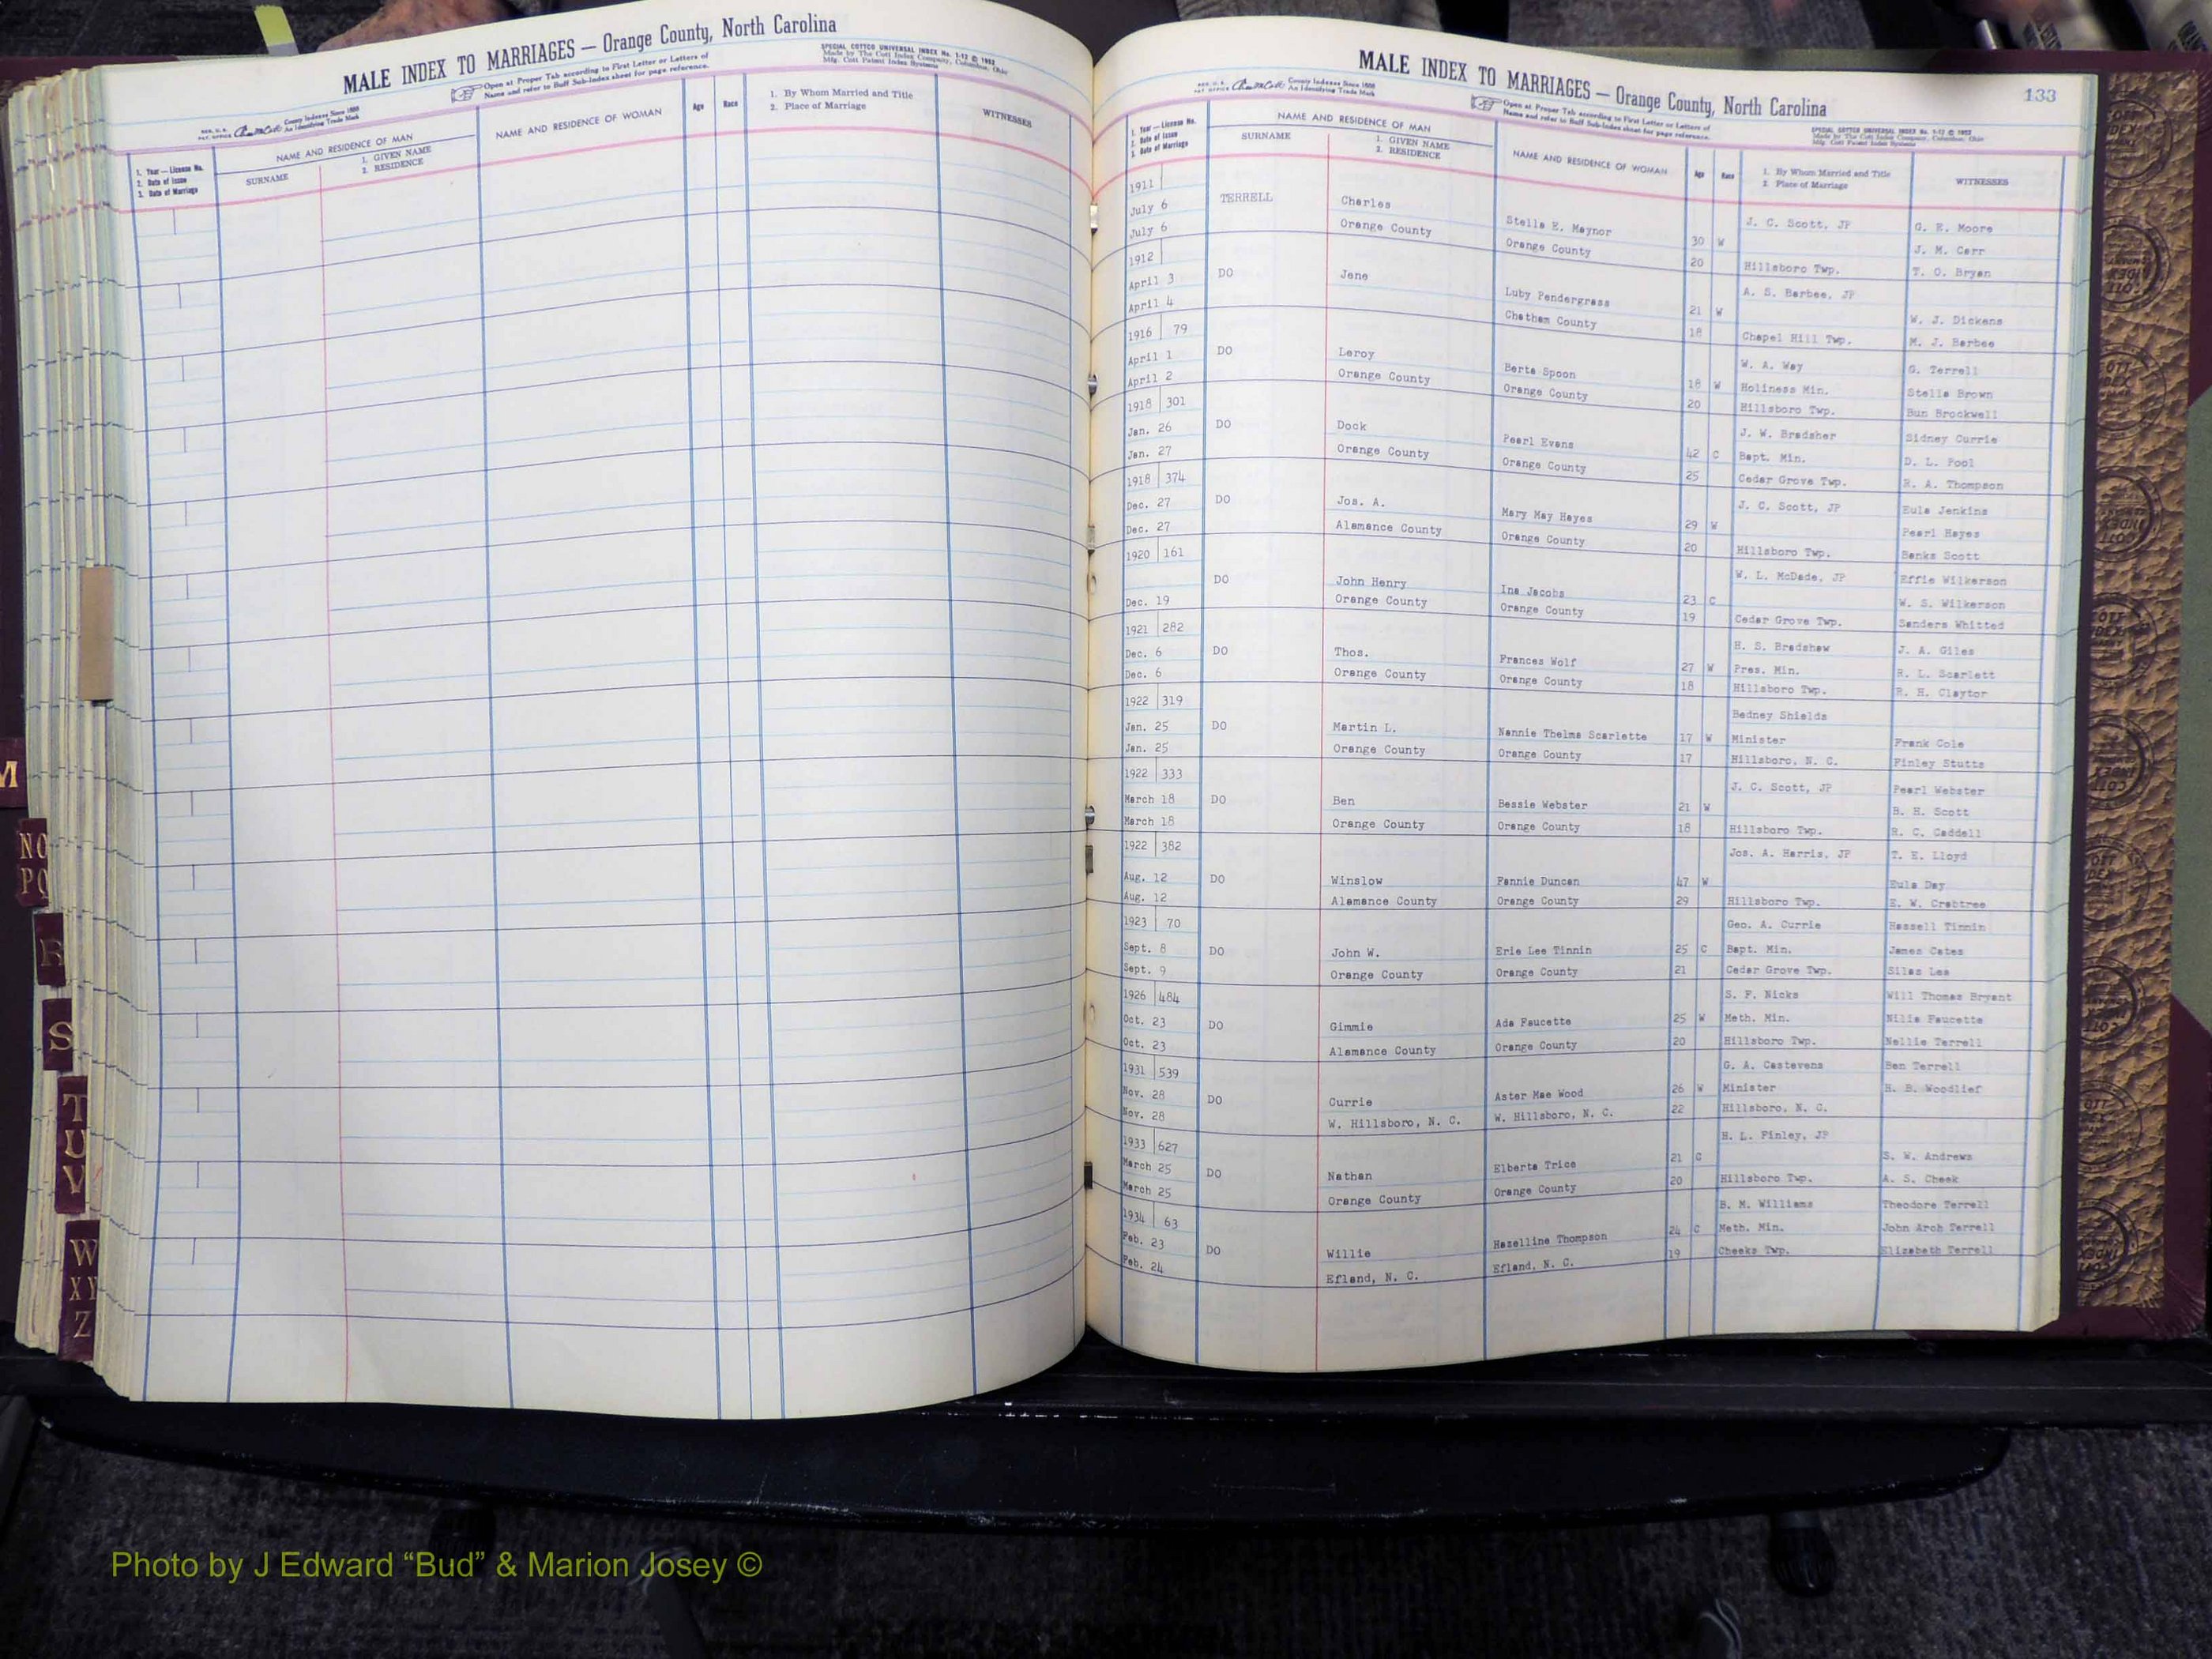 MALE INDEX TO MARRIAGES — Orange County, North Carolina
Open at Proper Tab according to First Letter or Letters of
Name and refer to Buff Sub-Index sheet for page reference.
SPECIAL COTTCO UNIVERSAL INDEX No. 1-12 © 1952
Made by The Cott Index Company, Columbus, Ohio
Mfg. Cott Patent Index Systems
County Indexes Since 1888
An Identifying Trade Mark
1. Year — License No.
2. Date of Issue
3. Date of Marriage
NAME AND RESIDENCE OF MAN
SURNAME
1. GIVEN NAME
2. RESIDENCE
NAME AND RESIDENCE OF WOMAN
Age
Race
1. By Whom Married and Title
2. Place of Marriage
WITNESSES
M
NO
PQ
R
S
T
U
V
W
XY
Z
MALE INDEX TO MARRIAGES — Orange County, North Carolina
133
County Indexes Since 1888
An Identifying Trade Mark
Open at Proper Tab according to First Letter or Letters of
Name and refer to Buff Sub-Index sheet for page reference.
SPECIAL COTTCO UNIVERSAL INDEX No. 1-12 © 1952
Made by The Cott Index Company, Columbus, Ohio
Mfg. Cott Patent Index Systems
1. Year — License No.
2. Date of Issue
3. Date of Marriage
NAME AND RESIDENCE OF MAN
SURNAME
1. GIVEN NAME
2. RESIDENCE
NAME AND RESIDENCE OF WOMAN
Age
Race
1. By Whom Married and Title
2. Place of Marriage
WITNESSES
1911 J. C. Scott, JP G. E. Moore
July 6 TERRELL Charles Stella E. Maynor 30 W J. M. Carr
July 6 Orange County Orange County 20 Hillsboro Twp. T. O. Bryan
1912 A. S. Barbee, JP
April 3 DO Jene Luby Pendergrass 21 W W. J. Dickens
April 4 Chatham County 18 Chapel Hill Twp. M. J. Barbee
1916 79 W. A. Way G. Terrell
April 1 DO Leroy Berta Spoon 18 W Holiness Min. Stella Brown
April 2 Orange County Orange County 20 Hillsboro Twp. Bun Brockwell
1918 301 J. W. Bradsher Sidney Currie
Jan. 26 DO Dock Pearl Evans 42 C Bapt. Min. D. L. Pool
Jan. 27 Orange County Orange County 25 Cedar Grove Twp. R. A. Thompson
1918 374 J. C. Scott, JP Eula Jenkins
Dec. 27 DO Jos. A. Mary May Hayes 29 W Pearl Hayes
Dec. 27 Alamance County Orange County 20 Hillsboro Twp. Banks Scott
1920 161 W. L. McDade, JP Effie Wilkerson
DO John Henry Ina Jacobs 23 C W. S. Wilkerson
Dec. 19 Orange County Orange County 19 Cedar Grove Twp. Sanders Whitted
1921 282 H. S. Bradshaw J. A. Giles
Dec. 6 DO Thos. Frances Wolf 27 W Pres. Min. R. L. Scarlett
Dec. 6 Orange County Orange County 18 Hillsboro Twp. R. H. Claytor
1922 319 Bedney Shields
Jan. 25 DO Martin L. Nannie Thelma Scarlette 17 W Minister Frank Cole
Jan. 25 Orange County Orange County 17 Hillsboro, N. C. Finley Stutts
1922 333 J. C. Scott, JP Pearl Webster
March 18 DO Ben Bessie Webster 21 W B. H. Scott
March 18 Orange County Orange County 18 Hillsboro Twp. R. C. Caddell
1922 382 Jos. A. Harris, JP T. E. Lloyd
Aug. 12 DO Winslow Fannie Duncan 47 W Eula Day
Aug. 12 Alamance County Orange County 29 Hillsboro Twp. E. W. Crabtree
1923 70 Geo. A. Currie Hassell Tinnin
Sept. 8 DO John W. Erie Lee Tinnin 25 C Bapt. Min. James Cates
Sept. 9 Orange County Orange County 21 Cedar Grove Twp. Silas Lea
1926 484 S. F. Nicks Will Thomas Bryant
Oct. 23 DO Gimmie Ada Faucette 25 W Meth. Min. Nilie Faucette
Oct. 23 Alamance County Orange County 20 Hillsboro Twp. Nellie Terrell
1931 539 G. A. Castevens Ben Terrell
Nov. 28 DO Currie Aster Mae Wood 26 W Minister H. B. Woodlief
Nov. 28 W. Hillsboro, N. C. W. Hillsboro, N. C. 22 Hillsboro, N. C.
1933 627 H. L. Finley, JP
March 25 DO Nathan Elberta Trice 21 C S. W. Andrews
March 25 Orange County Orange County 20 Hillsboro Twp. A. S. Cheek
1934 63 B. M. Williams Theodore Terrell
Feb. 23 DO Willie Hazelline Thompson 24 C Meth. Min. John Arch Terrell
Feb. 24 Efland, N. C. Efland, N. C. 19 Cheeks Twp. Elizabeth Terrell
Photo by J Edward “Bud” & Marion Josey ©